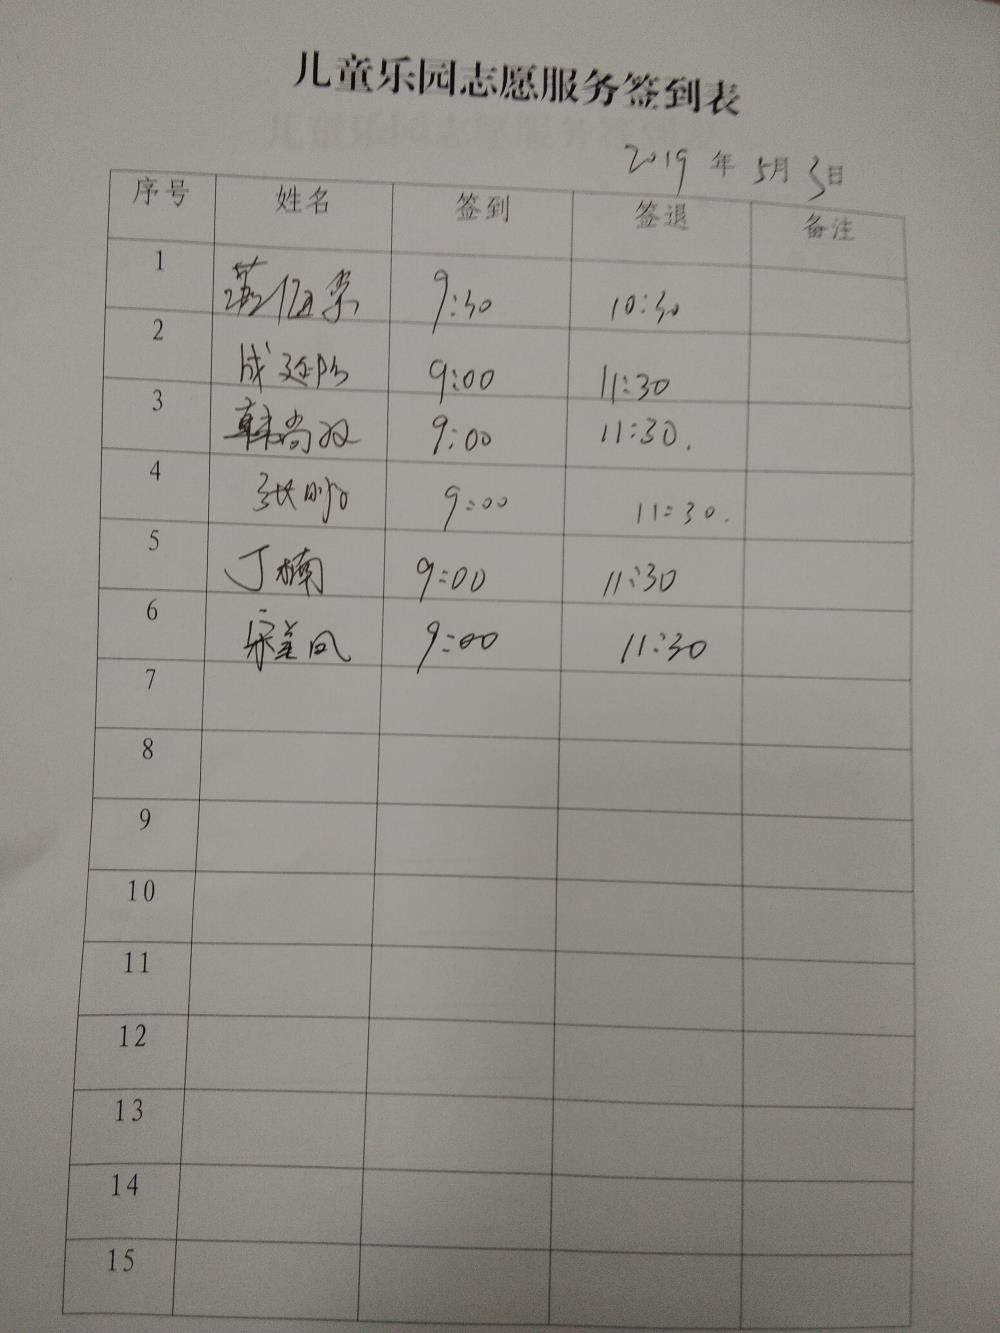 儿童乐园志愿服务签到表
2019 年 5月 3日
序号 姓名 签到 签退 备注
1 9:30 10:30
2 成延 9:00 11:30
3 韩尚双 9:00 11:30.
4 张 9:00 11:30.
5 丁楠 9:00 11:30
6 宋美凤 9:00 11:30
7
8
9
10
11
12
13
14
15